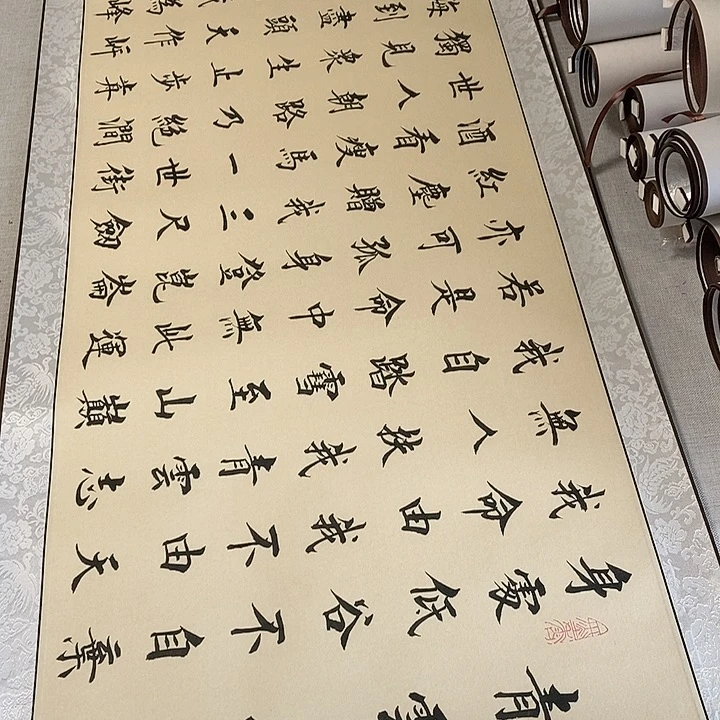 青雲
身處低谷不自棄
我命由我不由天
無人扶我青雲志
我自踏雪至山巔
若是命中無此運
亦可孤身登崑崙
紅塵贈我三尺劍
酒看瘦馬一世街
世人朝路乃絕澗
獨見眾生止步
海到盡頭天作岸
為峰